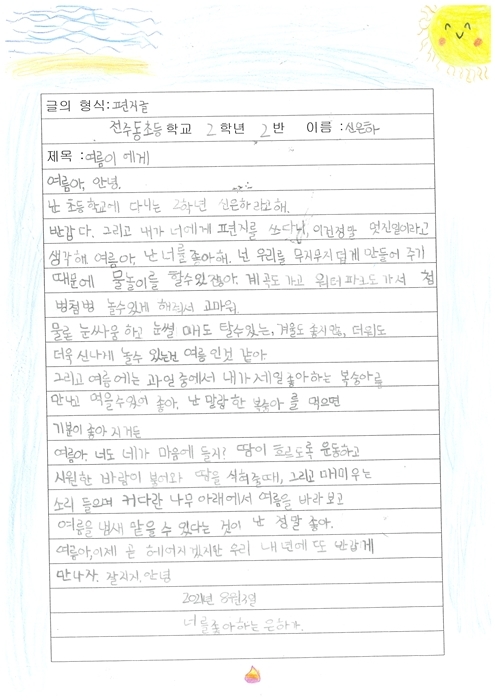 글의 형식:편지글
전주동초등학교 2학년 2반 이름:신은하
제목:여름이에게
여름아, 안녕.
난 초등학교에 다니는 2학년 신은하라고해.
반갑다. 그리고 내가 너에게 편지를 쓰다니, 이건정말 멋진일이라고
생각해 여름아, 난 너를좋아해. 넌 우리를 무지무지덥게 만들어 주기
때문에 물놀이를 할수있잖아. 계곡도 가고 워터파크도가서 첨
벙첨벙 놀수있게 해줘서 고마워.
물론 눈싸움 하고 눈썰매도 탈수있는, 겨울도 좋지만, 더워도
더욱 신나게 놀수 있는건 여름인것 같아
그리고 여름에는 과일중에서 내가 제일좋아하는 복숭아를
만나고 먹을수있어 좋아. 난 말랑한 복숭아를 먹으면
기분이 좋아 지거든
여름아. 너도 네가 마음에 들지? 땀이 흐르도록 운동하고
시원한 바람이 불어와 땀을 식혀줄때, 그리고 매미우는
소리 들으며 커다란 나무 아래에서 여름을 바라보고
여름을 냄새 맡을 수 있다는 것이 난 정말 좋아.
여름아,이제 곧 헤어지겠지만 우리 내년에 또 반갑게
만나자. 잘지지, 안녕
2021년 8월3일
너를좋아하는 은하가.